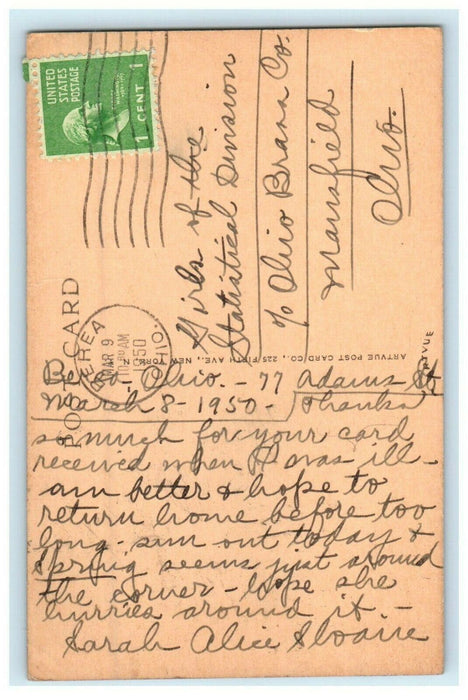 UNITED
STATES
POSTAGE
1 CENT 1
BEREA
MAR 9
AM
1950
OHIO.
POST CARD
Girls of the
Statistical Division
℅ Ohio Brass Co.
Mansfield
Ohio.
ARTVUE POST CARD CO., 225 FIFTH AVE., NEW YORK, N.
ARTVUE
Berea - Ohio. - 77 Adams St
March 8 - 1950 - Thanks
so much for your card
received when I was ill -
am better & hope to
return home before too
long - sun out today &
spring seems just around
the corner - hope she
hurries around it -
Sarah Alice Sloane